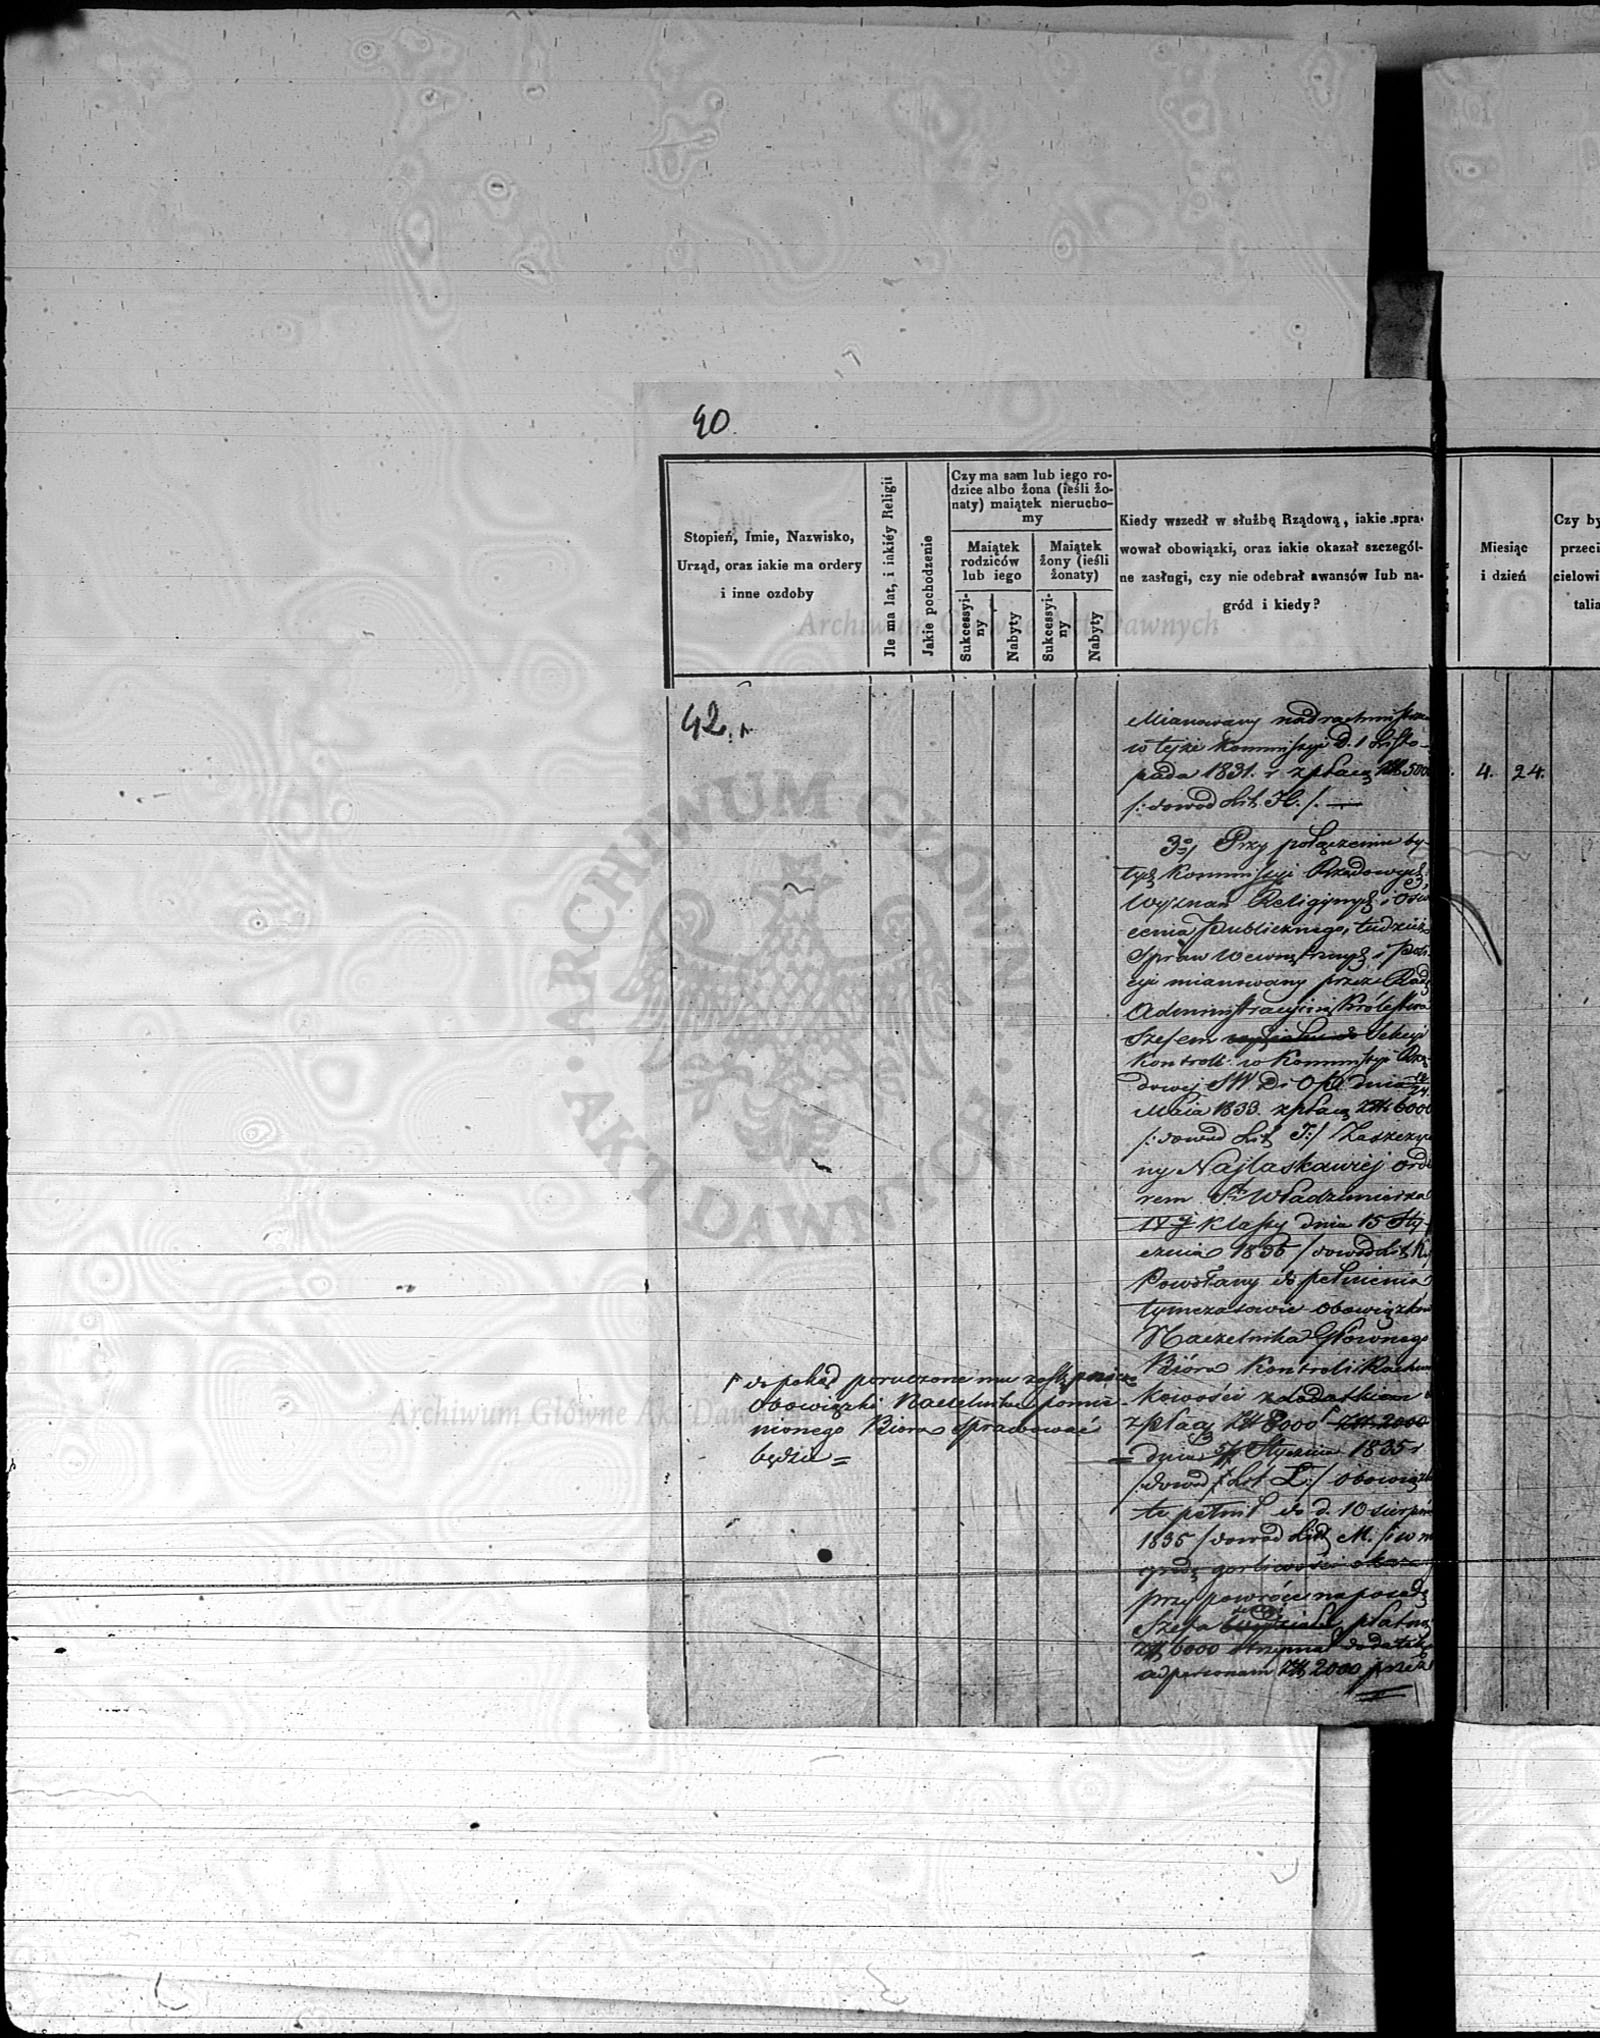 40.
Stopień, Imie, Nazwisko,
Urząd, oraz iakie ma ordery
i inne ozdoby
Jle ma lat, i iakiéy Religii
Jakie pochodzenie
Czy ma sam lub iego ro-
dzice albo żona (ieśli żo-
naty) maiątek nierucho-
my
Maiątek
rodziców
lub iego
Maiątek
żony (ieśli
żonaty)
Sukcessyi-
ny
Nabyty
Sukcessyi-
ny
Nabyty
Kiedy wszedł w służbę Rządową, iakie spra-
wował obowiązki, oraz iakie okazał szczegól-
ne zasługi, czy nie odebrał awansów lub na-
gród i kiedy?
Miesiąc
i dzień
Czy by
przeci
cielowi
talia
42.
Mianowany nadrachmistrzem
w tejże Kommissyi D. 1 Listo-
pada 1831. r z płacą Złł 5000
/: dowod Lit. H. /. —
4. 24.
3o/ Przy połączeniu by-
łych Kommissyi Rządowych
Wyznań Religijnych i Oświe
cenia Publicznego, tudzież
Spraw Wewnętrznych i Poli-
cyi mianowany przez Radę
Administracyjną Królestwa
Szefem Sekcyi
Kontroli w Kommissyi Rzą-
dowej SW. D. i OP. dnia 12/24
Maia 1833. z płacą Złł 6000
/: dowod Lit. I:/ Zaszczyco
ny Najłaskawiej orde
rem Sgo Władzimierza
IVej klassy dnia 15 Sty-
cznia 1835 / dowod Lit. K./
Powołany do pełnienia
tymczasowie obowiązków
Naczelnika Głównego
Bióra Kontroli Rachun
kowości z dodatkiem
z płacą Złł 8000 Złł 2000
dnia Stycznia 1835 r
/: dowod Lit. L:/ obowiązki
te pełnił do d. 10 sierpnia
1835 / dowod Lit. M. / i w na
grodę gorliwości
przy powrócie na posadę
Szefa płatną
Złł 6000 otrzymał dodatek
ad personam Złł 2000 przez
do pokąd poruczone mu zastępnicze
obowiązki Naczelnika pomie-
nionego Biora sprawować
będzie =
Archiwum Główne Akt Dawnych
ARCHIWUM GŁÓWNE · AKT DAWNYCH ·
Archiwum Główne Akt Dawnych